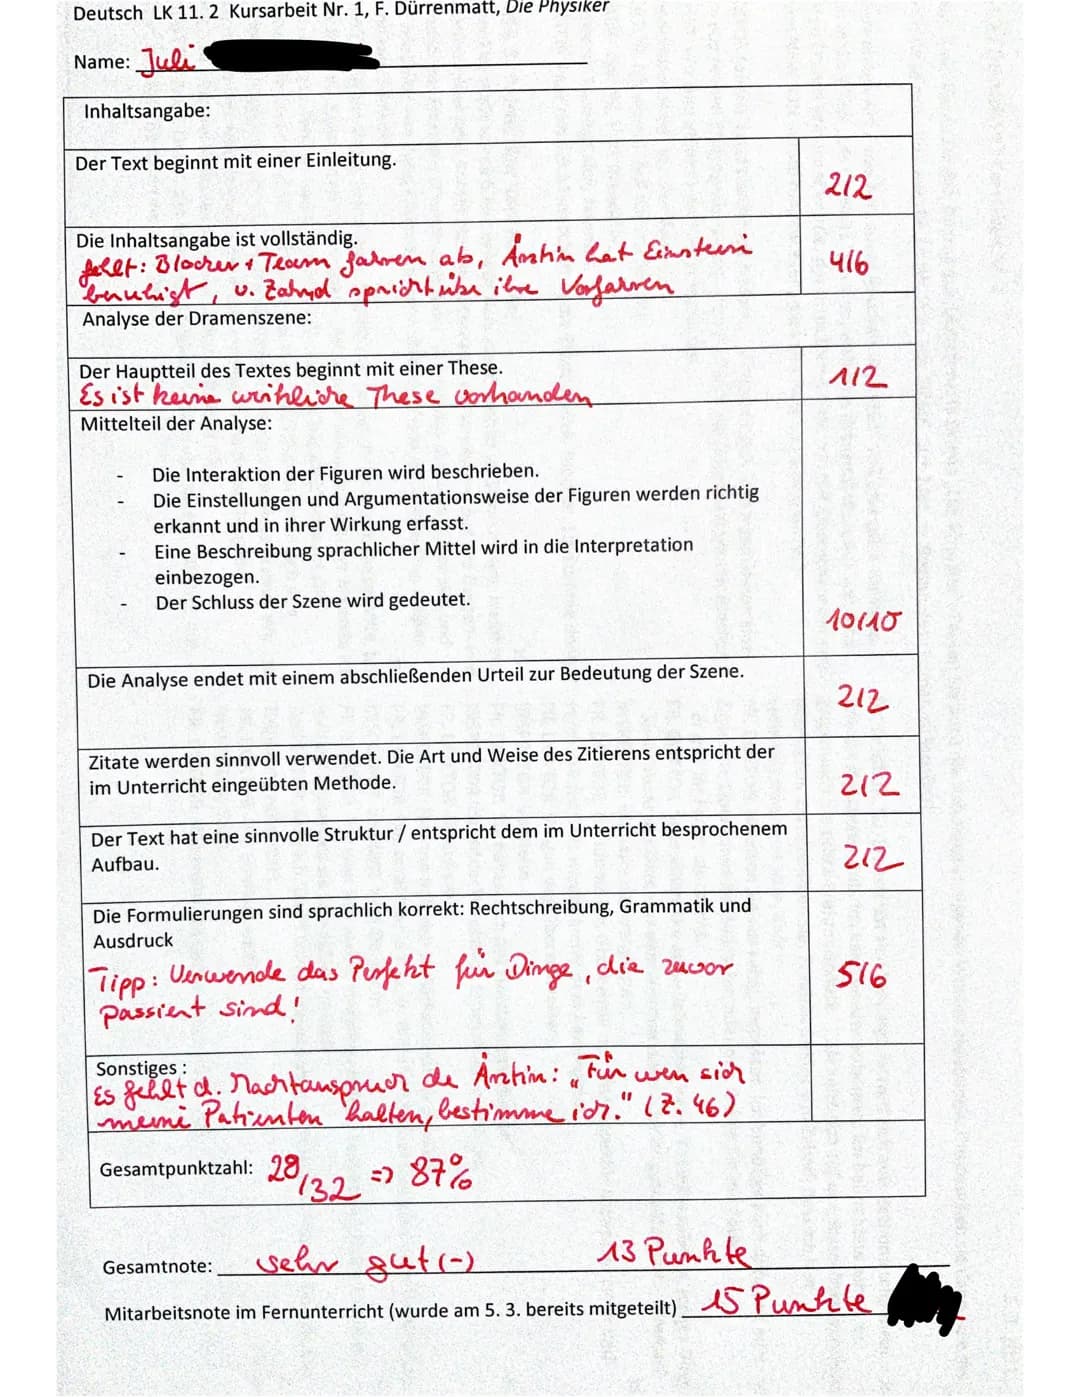 Deutsch LK 11. 2 Kursarbeit Nr. 1, F. Dürrenmatt, Die Physiker
Name: Juli
Inhaltsangabe:
Der Text beginnt mit einer Einleitung.
2/2
Die Inhaltsangabe ist vollständig.
fehlt: Blocher + Team fahren ab, Ärztin hat Einstein
beruhigt, v. Zahnd spricht über ihre Vorfahren
4/6
Analyse der Dramenszene:
Der Hauptteil des Textes beginnt mit einer These.
Es ist keine wirkliche These vorhanden
1/2
Mittelteil der Analyse:
- Die Interaktion der Figuren wird beschrieben.
- Die Einstellungen und Argumentationsweise der Figuren werden richtig
erkannt und in ihrer Wirkung erfasst.
- Eine Beschreibung sprachlicher Mittel wird in die Interpretation
einbezogen.
- Der Schluss der Szene wird gedeutet.
10/10
Die Analyse endet mit einem abschließenden Urteil zur Bedeutung der Szene.
2/2
Zitate werden sinnvoll verwendet. Die Art und Weise des Zitierens entspricht der
im Unterricht eingeübten Methode.
2/2
Der Text hat eine sinnvolle Struktur / entspricht dem im Unterricht besprochenem
Aufbau.
2/2
Die Formulierungen sind sprachlich korrekt: Rechtschreibung, Grammatik und
Ausdruck
Tipp: Verwende das Perfekt für Dinge, die zuvor
passiert sind!
5/6
Sonstiges :
Es fehlt d. Machtanspruch der Ärztin: „Für wen sich
meine Patienten halten, bestimme ich." (Z. 46)
Gesamtpunktzahl: 28/32 => 87%
Gesamtnote: sehr gut (-) 13 Punkte
Mitarbeitsnote im Fernunterricht (wurde am 5. 3. bereits mitgeteilt) 15 Punkte